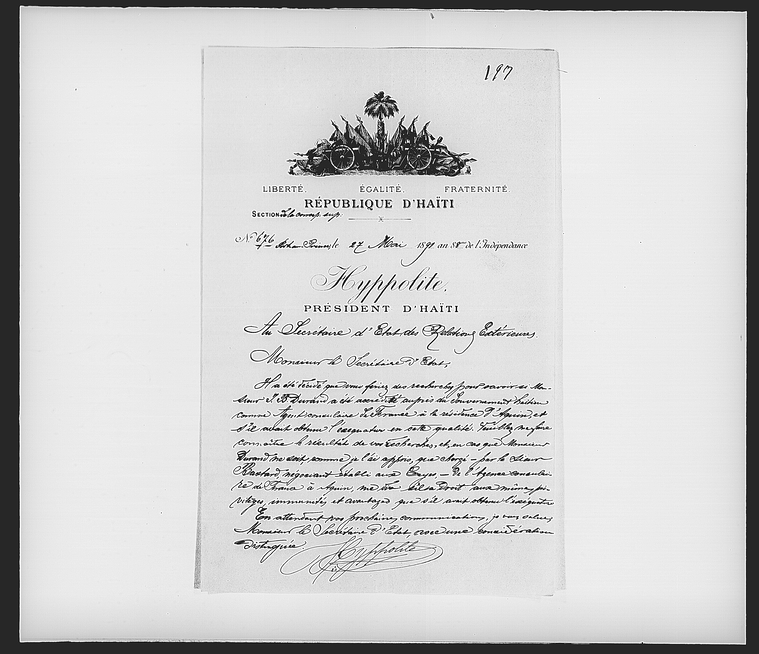 197
LIBERTÉ. ÉGALITÉ. FRATERNITÉ.
RÉPUBLIQUE D'HAÏTI
SECTION de la corresp.
No 676 le 27 Mai 1891 an 88me de l'Indépendance
Hyppolite,
PRÉSIDENT D'HAÏTI
Au Secrétaire d'Etat des Relations Extérieures.
Monsieur le Secrétaire d'Etat,
Il a été décidé que vous feriez des recherches pour savoir si Mon-
sieur J. B. Durand a été accrédité auprès du Gouvernement haïtien
comme Agent consulaire de France à la résidence d'Aquin, et
s'il avait obtenu l'exequatur en cette qualité. Veuillez me faire
connaître le résultat de vos recherches, et, en cas que Monsieur
Durand ne soit, comme je l'ai appris, que chargé – par le Sieur
négociant établi aux Cayes – de l'Agence consulai-
re de France à Aquin, me dire s'il a droit aux mêmes pri-
vilèges, immunités et avantages que s'il avait obtenu l'exequatur.
En attendant vos prochaines communications, je vous salue,
Monsieur le Secrétaire d'Etat, avec une considération
distinguée.
Hyppolite